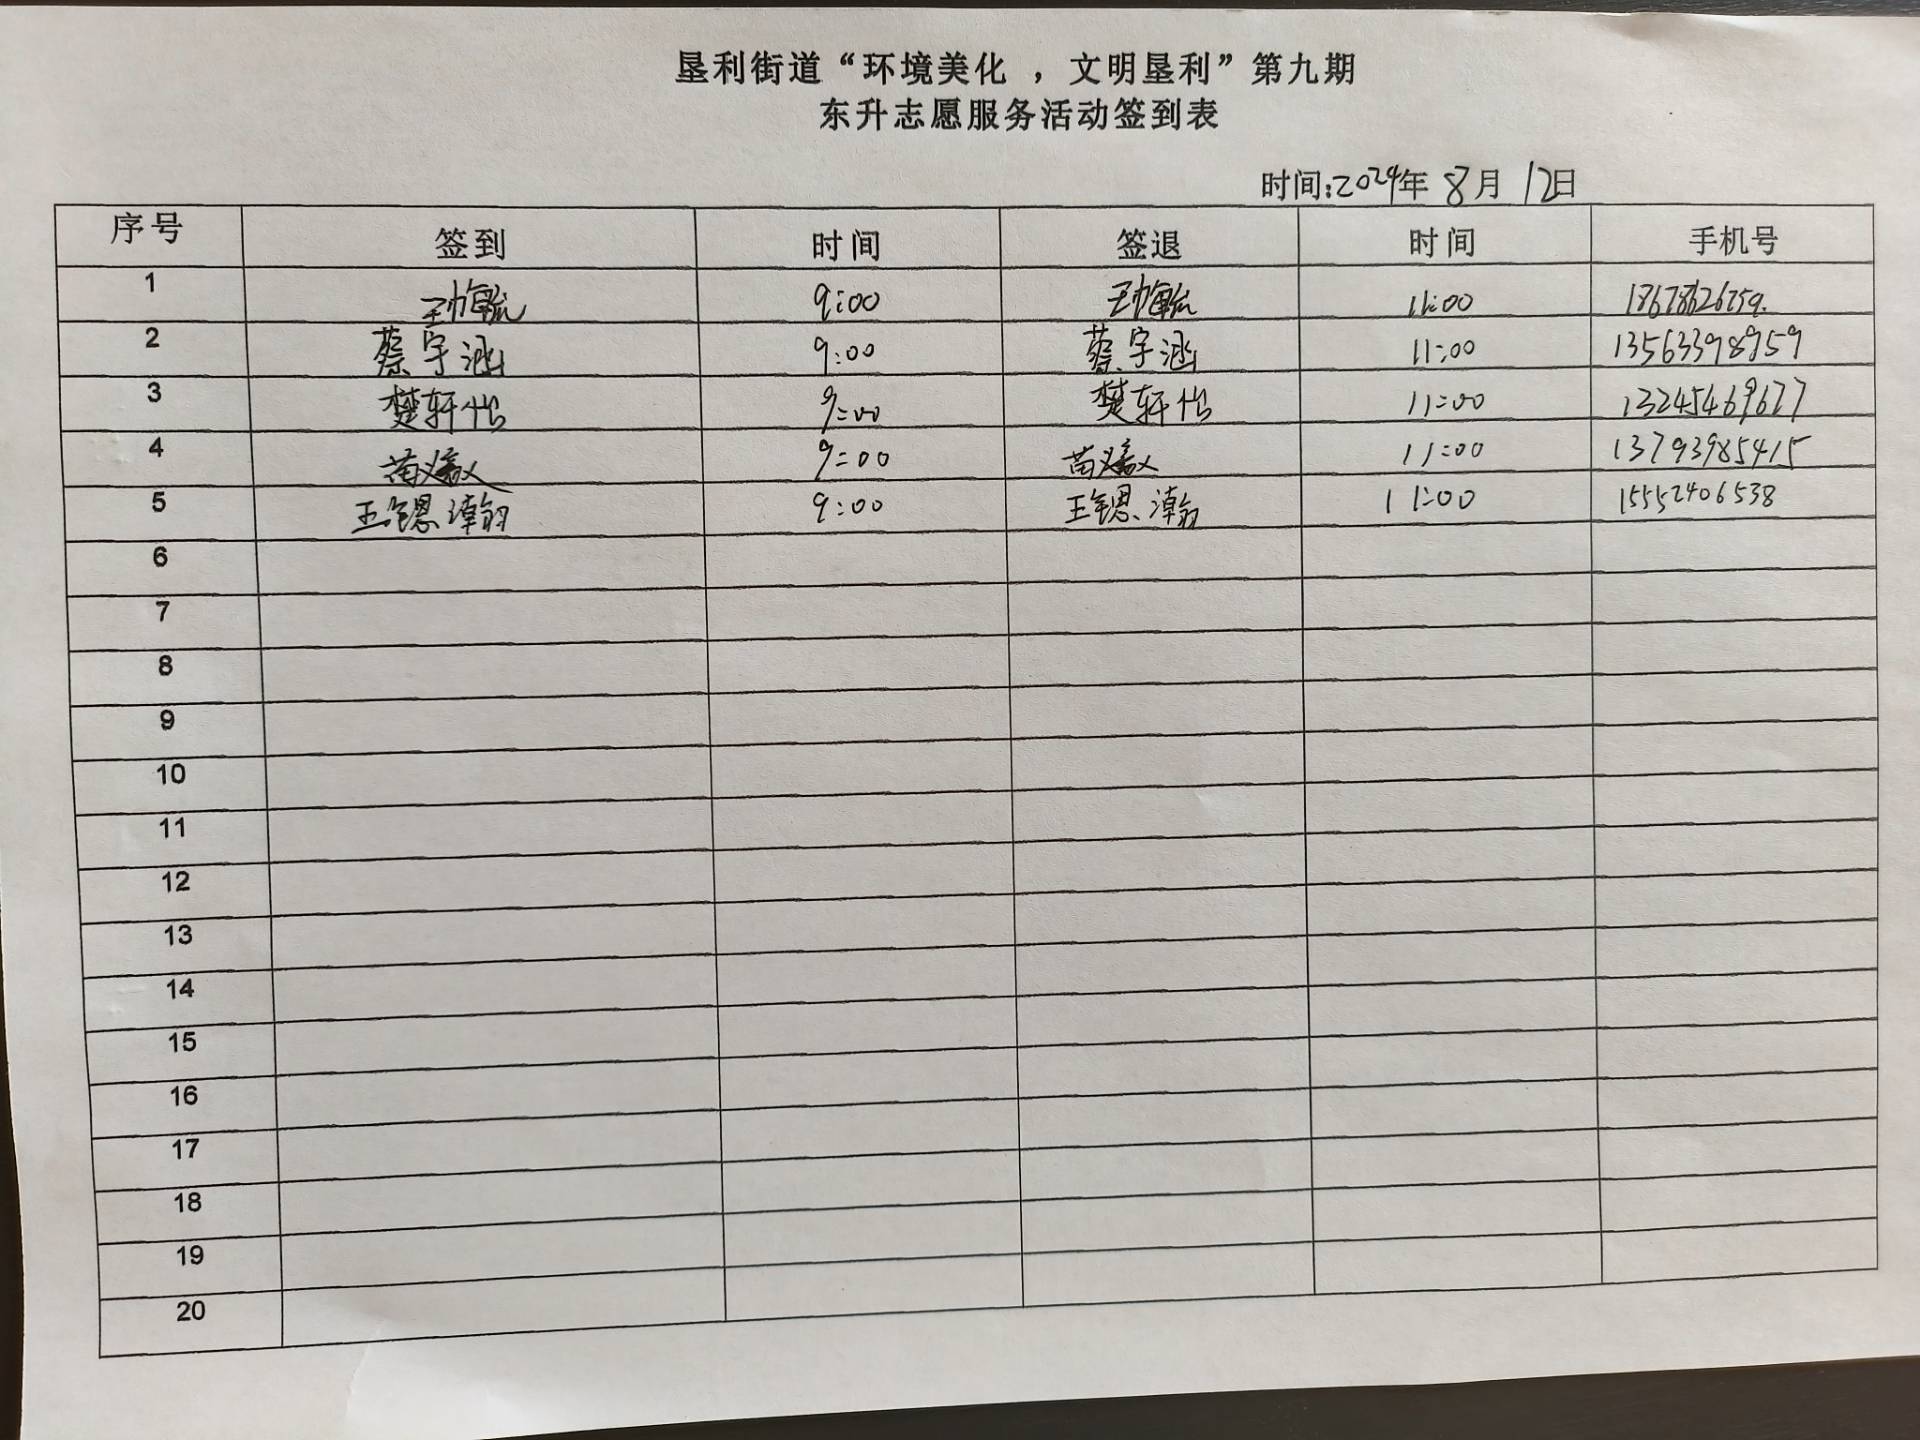 垦利街道“环境美化 ，文明垦利”第九期
东升志愿服务活动签到表
时间:2024年 8月 12日
序号 签到 时间 签退 时间 手机号
1 9:00 11:00
2 蔡宇涵 9:00 蔡宇涵 11:00 13563398959
3 楚轩怡 9:00 楚轩怡 11:00 13245469677
4 苗 9:00 苗 11:00 13793985415
5 王 恩 瀚 9:00 王 恩 瀚 11:00 15552406538
6
7
8
9
10
11
12
13
14
15
16
17
18
19
20